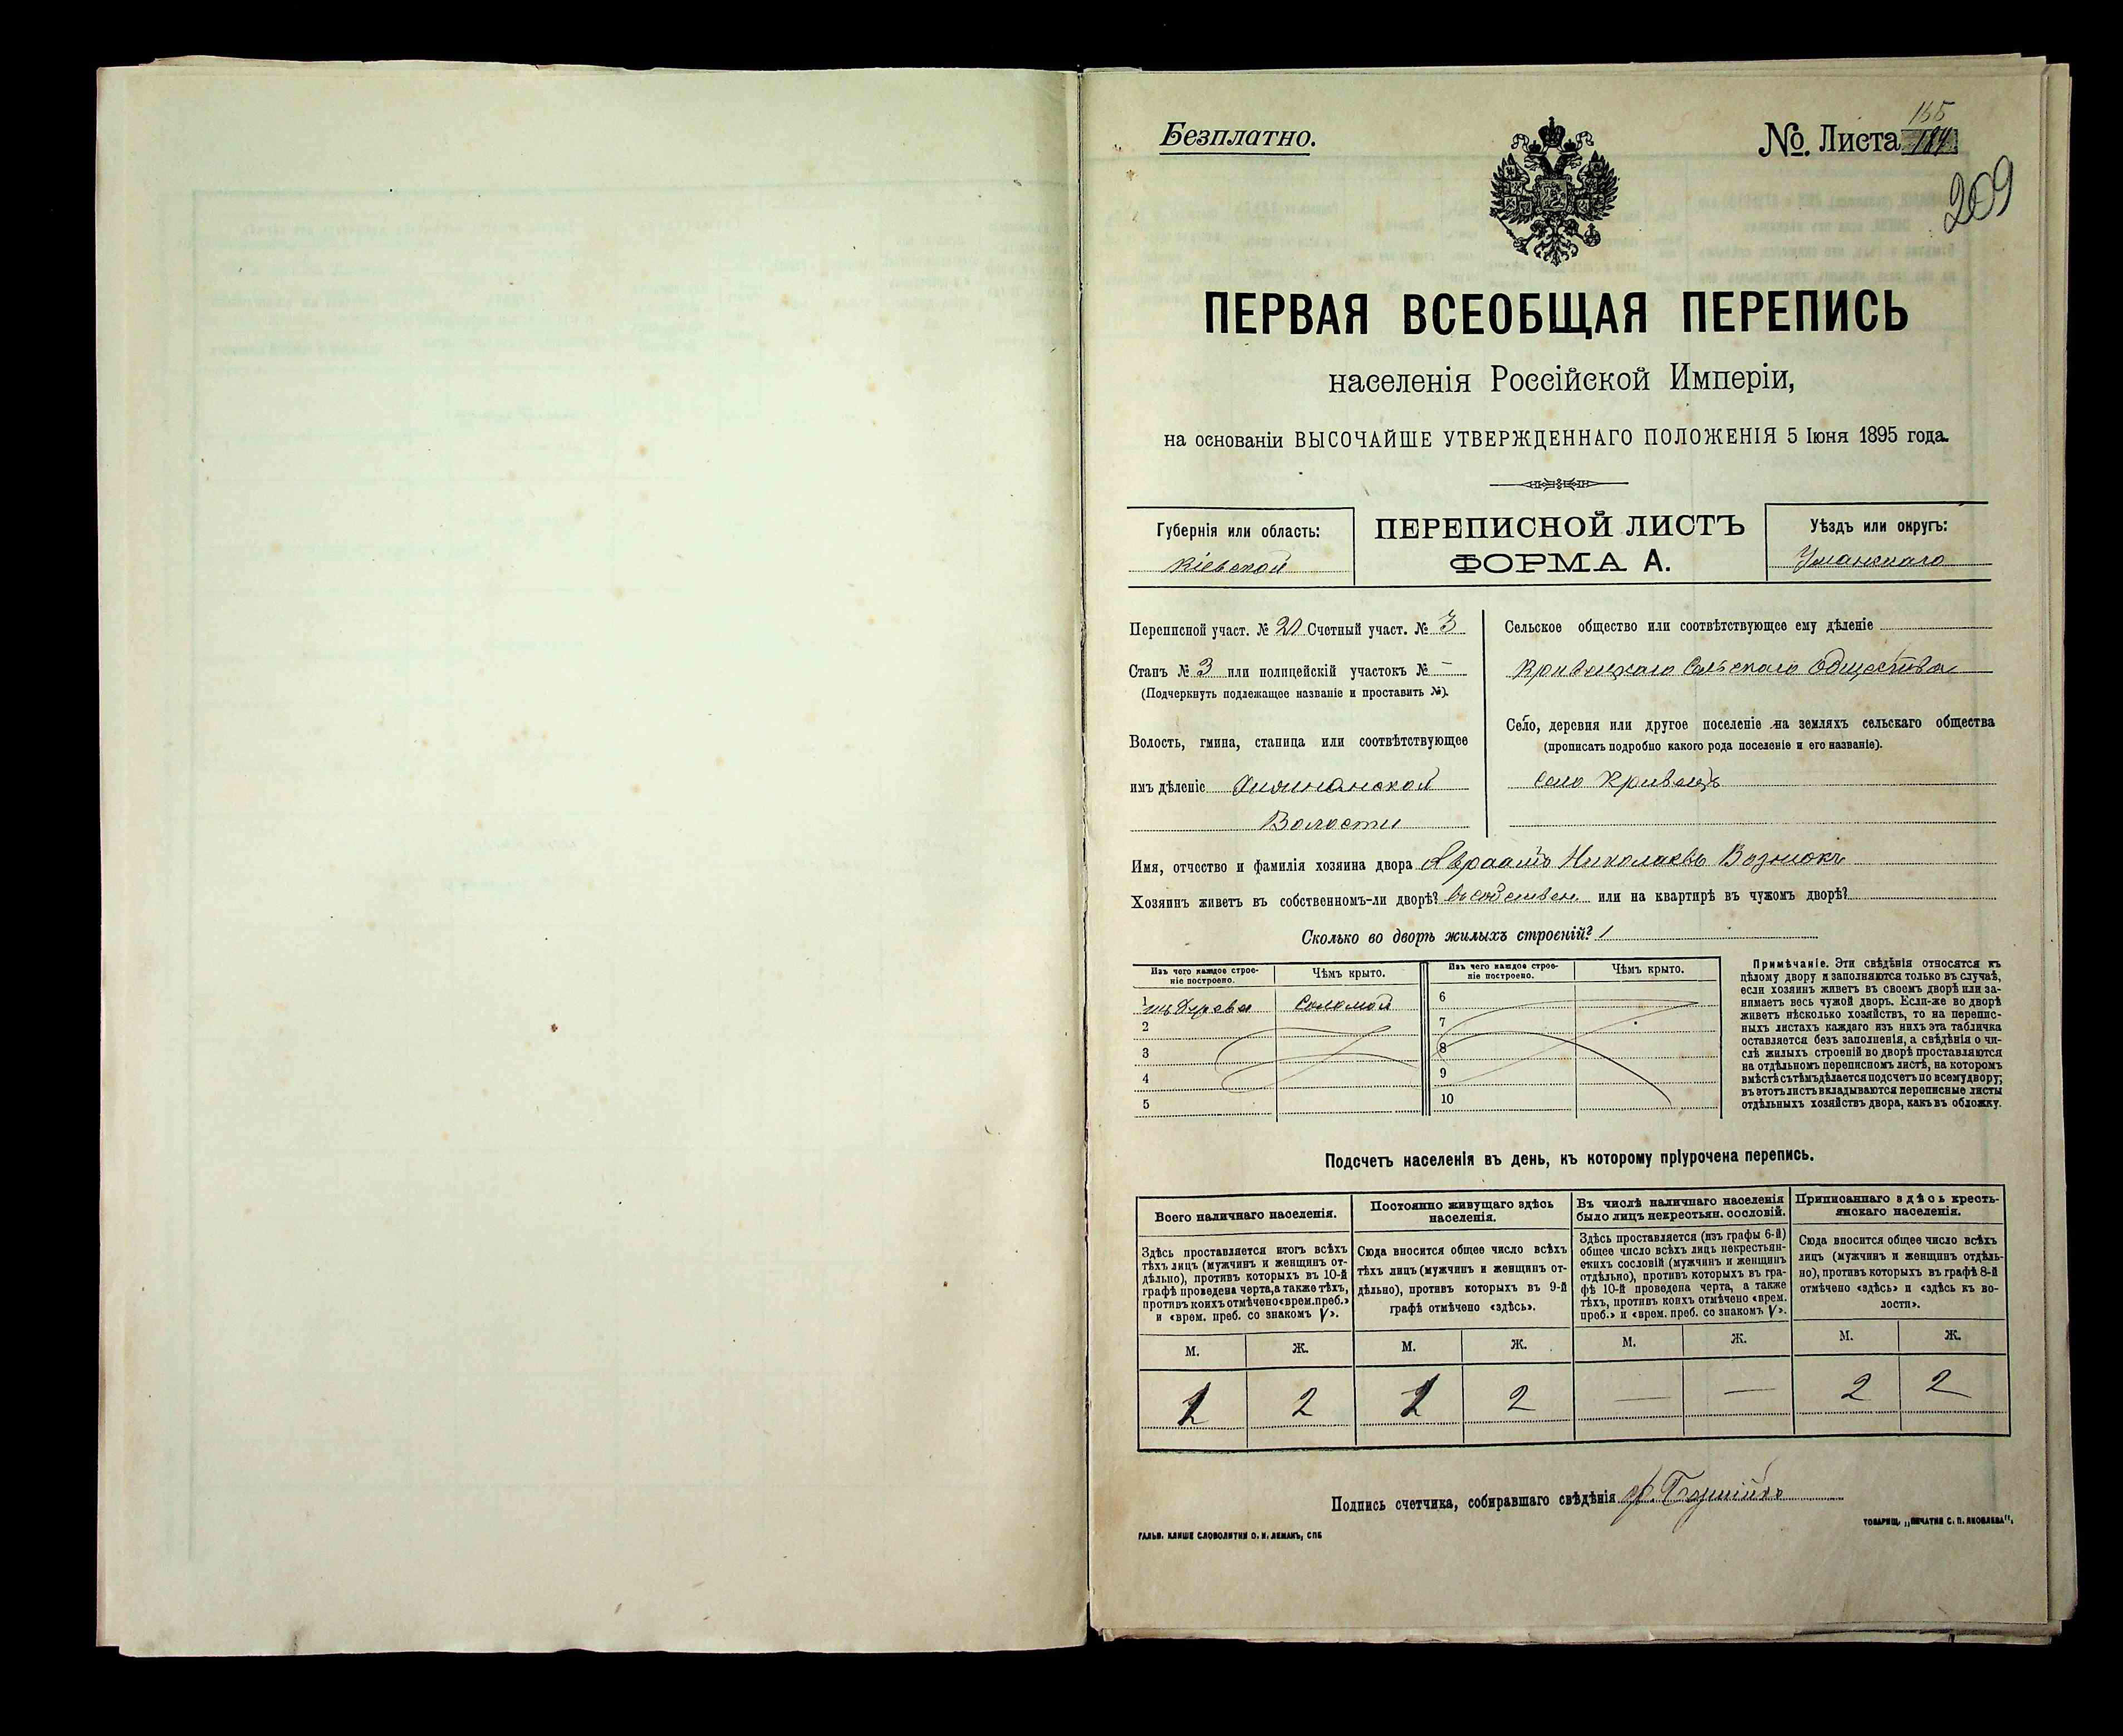 Безплатно.
№. Листа 184
155
209
ПЕРВАЯ ВСЕОБЩАЯ ПЕРЕПИСЬ
населенія Россійской Имперіи,
на основаніи ВЫСОЧАЙШЕ УТВЕРЖДЕННАГО ПОЛОЖЕНІЯ 5 Іюня 1895 года.
Губернія или область:
Кіевской
ПЕРЕПИСНОЙ ЛИСТЪ
ФОРМА А.
Уѣздъ или округъ:
Уманскаго
Переписной участ. № 20 Счетный участ. № 3
Станъ № 3 или полицейскій участокъ № —
(Подчеркнуть подлежащее названіе и проставить №).
Волость, гмина, станица или соотвѣтствующее
имъ дѣленіе
Волости
Сельское общество или соотвѣтствующее ему дѣленіе
Кривецкаго Сельскаго Общества
Село, деревня или другое поселеніе на земляхъ сельскаго общества
(прописать подробно какого рода поселеніе и его названіе).
село Кривецъ
Имя, отчество и фамилія хозяина двора Авраамъ Николаевъ Вознюкъ
Хозяинъ живетъ въ собственномъ-ли дворѣ? въ собствен. или на квартирѣ въ чужомъ дворѣ?
Сколько во дворѣ жилыхъ строеній? 1
Изъ чего каждое строе-
ніе построено.
Чѣмъ крыто.
Изъ чего каждое строе-
ніе построено.
Чѣмъ крыто.
1 изъ дерева Соломой
2
3
4
5
6
7
8
9
10
Примѣчаніе. Эти свѣдѣнія относятся къ
цѣлому двору и заполняются только въ случаѣ,
если хозяинъ живетъ въ своемъ дворѣ или за-
нимаетъ весь чужой дворъ. Если-же во дворѣ
живетъ нѣсколько хозяйствъ, то на перепис-
ныхъ листахъ каждаго изъ нихъ эта табличка
оставляется безъ заполненія, а свѣдѣнія о чи-
слѣ жилыхъ строеній во дворѣ проставляются
на отдѣльномъ переписномъ листѣ, на которомъ
вмѣстѣ съ тѣмъ дѣлается подсчетъ по всему двору;
въ этотъ листъ вкладываются переписные листы
отдѣльныхъ хозяйствъ двора, какъ въ обложку.
Подсчетъ населенія въ день, къ которому пріурочена перепись.
Всего наличнаго населенія.
Здѣсь проставляется итогъ всѣхъ
тѣхъ лицъ (мужчинъ и женщинъ от-
дѣльно), противъ которыхъ въ 10-й
графѣ проведена черта, а также тѣхъ,
противъ коихъ отмѣчено «врем. преб.»
и «врем. преб. со знакомъ V».
Постоянно живущаго здѣсь
населенія.
Сюда вносится общее число всѣхъ
тѣхъ лицъ (мужчинъ и женщинъ от-
дѣльно), противъ которыхъ въ 9-й
графѣ отмѣчено «здѣсь».
Въ числѣ наличнаго населенія
было лицъ некрестьян. сословій.
Здѣсь проставляется (изъ графы 6-й)
общее число всѣхъ лицъ некрестьян-
скихъ сословій (мужчинъ и женщинъ
отдѣльно), противъ которыхъ въ гра-
фѣ 10-й проведена черта, а также
тѣхъ, противъ коихъ отмѣчено «врем.
преб.» и «врем. преб. со знакомъ V».
Приписаннаго здѣсь кресть-
янскаго населенія.
Сюда вносится общее число всѣхъ
лицъ (мужчинъ и женщинъ отдѣль-
но), противъ которыхъ въ графѣ 8-й
отмѣчено «здѣсь» и «здѣсь къ во-
лости».
М. Ж. М. Ж. М. Ж. М. Ж.
1 2 1 2 — — 2 2
Подпись счетчика, собиравшаго свѣдѣнія
ГАЛЬВ. КЛИШЕ СЛОВОЛИТНИ О. И. ЛЕМАНЪ, СПБ
ТОВАРИЩ. „ПЕЧАТНЯ С. П. ЯКОВЛЕВА“.